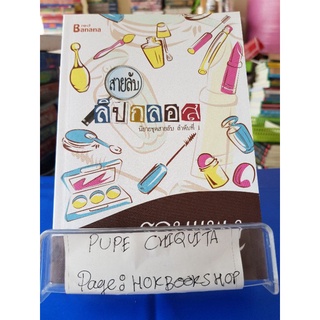 Banana
สายลับ
ลิปกลอส
นิยายชุดสายลับ ลำดับที่ 1
PUPE CHIQUITA
Page: HOKBOOKSHOP